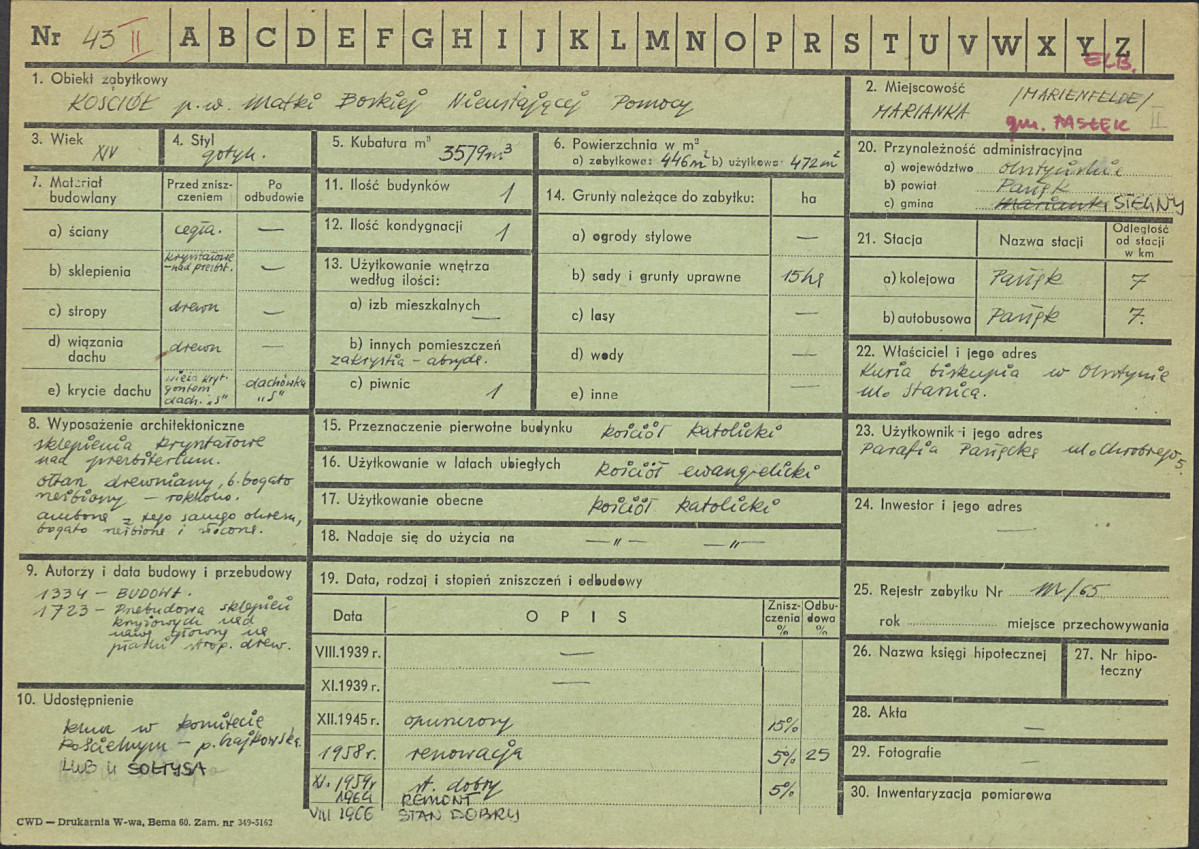 Nr 43 II A B C D E F G H I J K L M N O P R S T U V W X Y Z
ELB.
1. Obiekt zabytkowy
KOŚCIÓŁ p.w. Matki Boskiej Nieustającej Pomocy
2. Miejscowość /MARIENFELDE/
MARIANKA II
gm. PASŁĘK
3. Wiek XIV
4. Styl gotyk.
5. Kubatura m³ 3579 m³
6. Powierzchnia w m²
a) zabytkowa: 446 m² b) użytkowa: 472 m²
7. Materiał budowlany
Przed zniszczeniem
Po odbudowie
a) ściany cegła. —
b) sklepienia kryształowe —
c) stropy drewn —
d) wiązania dachu drewn —
e) krycie dachu
gontem
dach. „S"
dachówka „S"
8. Wyposażenie architektoniczne
sklepienia kryształowe
nad prezbiterium.
ołtarz drewniany, b. bogato
rzeźbiony — rokoko.
ambona z tego samego okresu,
bogato rzeźbiona i złocona.
9. Autorzy i data budowy i przebudowy
1334 — BUDOWA.
1723 — Przebudowa sklepień
krzyżowych nad
nawą główną na
strop. drew.
10. Udostępnienie
klucz w komitecie
kościelnym — p.
LUB u SOŁTYSA
11. Ilość budynków 1
12. Ilość kondygnacji 1
13. Użytkowanie wnętrza według ilości:
a) izb mieszkalnych —
b) innych pomieszczeń
zakrystia — absyda.
c) piwnic 1
14. Grunty należące do zabytku: ha
a) ogrody stylowe —
b) sady i grunty uprawne 15 ha
c) lasy —
d) wody —
e) inne —
15. Przeznaczenie pierwotne budynku kościół katolicki
16. Użytkowanie w latach ubiegłych kościół ewangelicki
17. Użytkowanie obecne kościół katolicki
18. Nadaje się do użycia na —„— —„—
19. Data, rodzaj i stopień zniszczeń i odbudowy
Data OPIS Zniszczenia % Odbudowa %
VIII.1939 r. —
XI.1939 r. —
XII.1945 r. opuszczony 15%
1958 r. renowacja 5% 25
XI. 1959 r st. dobry 5%
1964 REMONT
VIII 1966 STAN DOBRY
20. Przynależność administracyjna
a) województwo olsztyńskie
b) powiat Pasłęk
c) gmina Marianka SIELINY
21. Stacja Nazwa stacji Odległość od stacji w km
a) kolejowa Pasłęk 7
b) autobusowa Pasłęk 7.
22. Właściciel i jego adres
Kuria biskupia w Olsztynie
ul. Staszica.
23. Użytkownik i jego adres
Parafia Pasłęcka ul. Chrobrego 5.
24. Inwestor i jego adres
—
25. Rejestr zabytku Nr /65
rok miejsce przechowywania
26. Nazwa księgi hipotecznej
27. Nr hipoteczny
28. Akta —
29. Fotografie —
30. Inwentaryzacja pomiarowa
CWD — Drukarnia W-wa, Bema 60. Zam. nr 349-5162